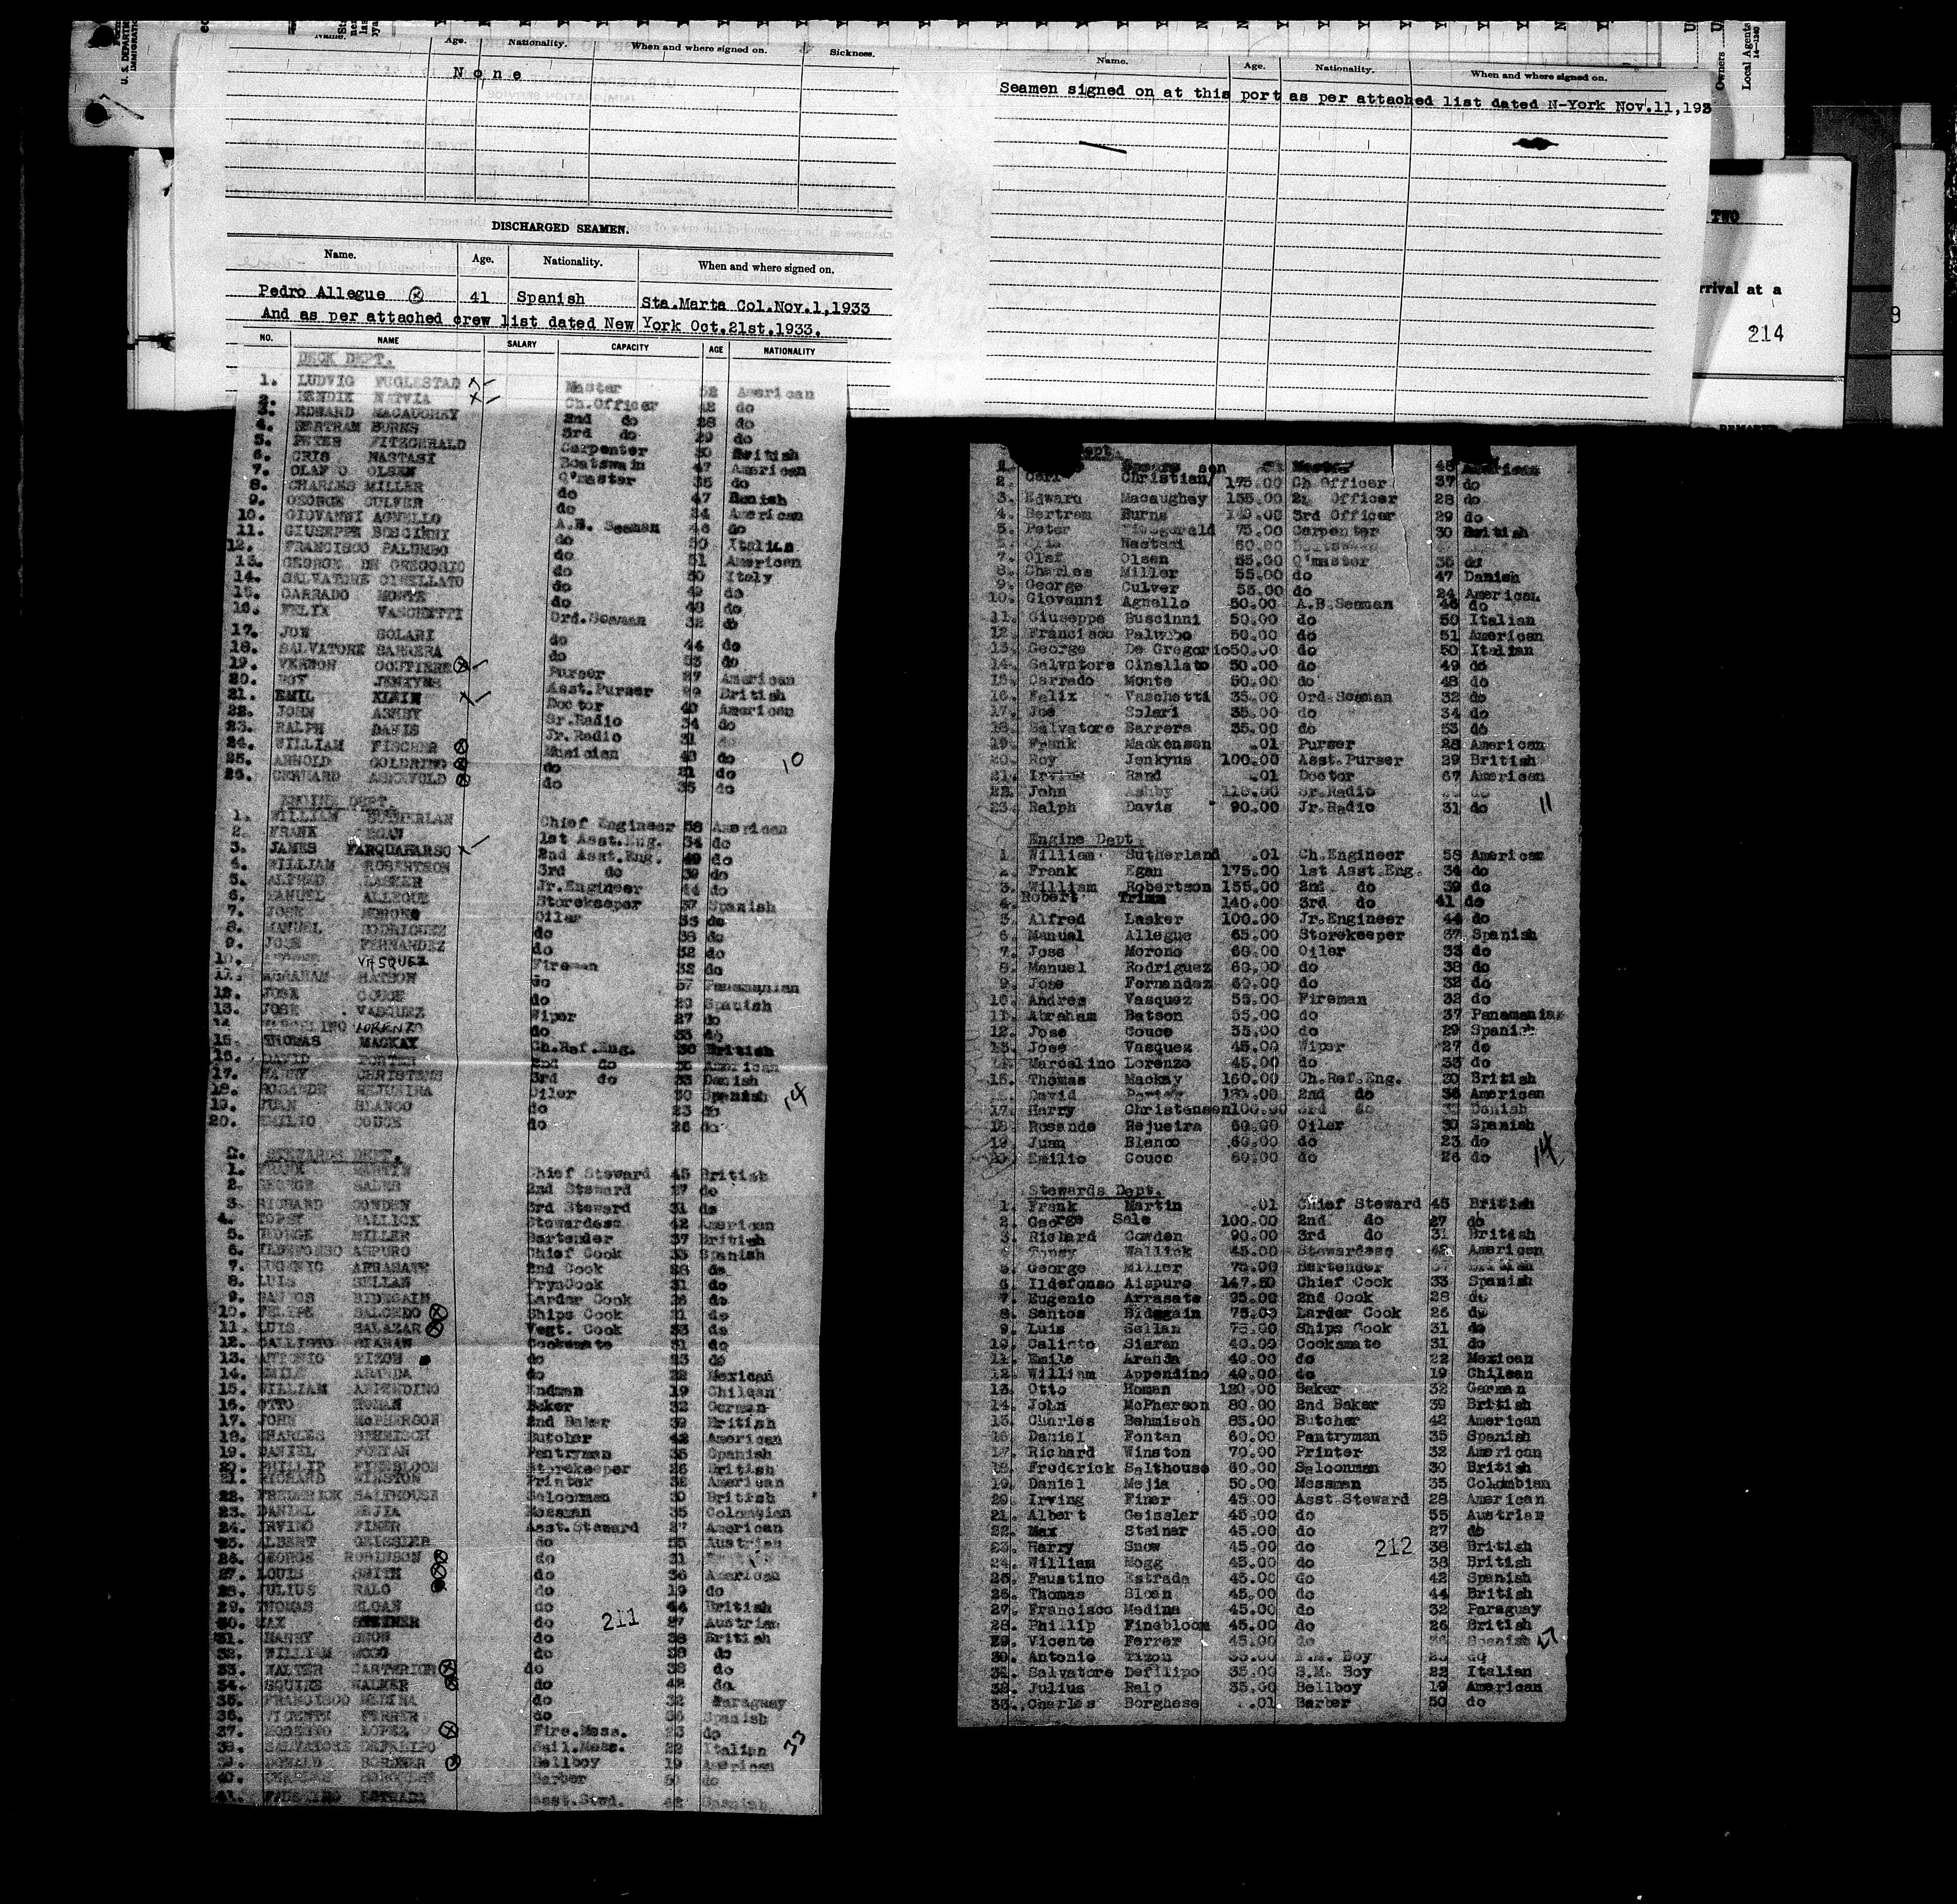 Name. Age. Nationality. When and where signed on. Sickness.
None
DISCHARGED SEAMEN.
Name. Age. Nationality. When and where signed on.
Pedro Allegue 41 Spanish Sta.Marta Col.Nov.1,1933
And as per attached crew list dated New York Oct.21st.1933.
NO. NAME SALARY CAPACITY AGE NATIONALITY
DECK DEPT.
1. LUDVIG FUGLESTAD Master 52 American
2. BENDIK NATVIA Ch.Officer 42 do
3. EDWARD MACAUGHEY 2nd do 28 do
4. BERTRAM BURNS 3rd do 29 do
5. PETER FITZGERALD Carpenter 30 British
6. CRIS NASTASI Boatswain 47 American
7. OLAF O OLSEN Q'master 35 do
8. CHARLES MILLER do 47 Danish
9. GEORGE CULVER do 24 American
10. GIOVANNI AGNELLO A.B. Seaman 46 do
11. GIUSEPPE BUSCINNI do 50 Italian
12. FRANCISCO PALUMBO do 51 American
13. GEORGE DE GREGORIO do 50 Italy
14. SALVATORE CINELLATO do 49 do
15. CARRADO MONTE do 48 do
16. FELIX VASCHETTI Ord.Seaman 32 do
17. JOE SOLARI do 44 do
18. SALVATORE BARRERA do 53 do
19. VERNON Purser 27 American
20. ROY JENKYNS Asst.Purser 29 British
21. EMIL KLEIN Doctor 48 American
22. JOHN ASHBY Sr.Radio 34 do
23. RALPH DAVIS Jr.Radio 31 do
24. WILLIAM FISCHER Musician 43 do
25. ARNOLD GOLDRING do 21 do
26. GERHARD do 35 do
10
ENGINE DEPT.
1. WILLIAM SUTHERLAN Chief Engineer 58 American
2. FRANK EGAN 1st Asst.Eng. 34 do
3. JAMES FARQUAHARSO 2nd Asst.Eng. 49 do
4. WILLIAM ROBERTSON 3rd do 39 do
5. ALFRED LASKER Jr.Engineer 44 do
6. MANUEL ALLEGUE Storekeeper 37 Spanish
7. JOSE MORONO Oiler 33 do
8. MANUEL RODRIGUEZ do 38 do
9. JOSE FERNANDEZ do 32 do
10. VASQUEZ Fireman 32 do
11. ABRAHAM BATSON do 37 Panamanian
12. JOSE COUCE do 29 Spanish
13. JOSE VASQUEZ Wiper 27 do
14. MARCELINO LORENZO do 33 do
15. THOMAS MACKAY Ch.Ref.Eng. 30 British
16. DAVID PORTER 2nd do 36 American
17. HARRY CHRISTENS 3rd do 33 Danish
18. ROSANDE REJUEIRA Oiler 30 Spanish
19. JUAN BLANCO do 23 do
20. EMILIO COUCE do 26 do
14
STEWARDS DEPT.
1. FRANK MARTIN Chief Steward 45 British
2. GEORGE SALES 2nd Steward 27 do
3. RICHARD COWDEN 3rd Steward 31 do
4. TOPSY WALLICK Stewardess 42 American
5. GEORGE MILLER Bartender 37 British
6. ILDEFONSO ASPURO Chief Cook 33 Spanish
7. EUGENIO ARRASATE 2nd Cook 28 do
8. LUIS SELLAN FrynCook 31 do
9. SANTOS BIDEGAIN Larder Cook 26 do
10. FELIPE SALCEDO Ships Cook 31 do
11. LUIS SALAZAR Vegt. Cook 33 do
12. CALLISTO SIARAN Cooksmate 31 do
13. ANTONIO TIZON do 23 do
14. EMILE ARANDA do 22 Mexican
15. WILLIAM APPENDINO Endman 19 Chilean
16. OTTO HOMAN Baker 32 German
17. JOHN McPHERSON 2nd Baker 39 British
18. CHARLES BEHMISCH Butcher 42 American
19. DANIEL FONTAN Pantryman 35 Spanish
20. PHILLIP FINEBLOOM Storekeeper 26 British
21. RICHARD WINSTON Printer 32 American
22. FREDERICK SALTHOUSE Saloonman 30 British
23. DANIEL MEJIA Messman 35 Colombian
24. IRVING FINER Asst.Steward 27 American
25. ALBERT GEISSLER do 55 Austrian
26. GEORGE ROBINSON do 31
27. LOUIS SMITH do 36 American
28. JULIUS RALO do 19 do
29. THOMAS SLOAN do 44 British
30. MAX STEINER do 27 Austrian
31. HARRY SNOW do 38 British
32. WILLIAM MOGG do 38 do
33. WALTER CARTERIOR do 38 do
34. SQUIRE WALKER do 42 do
35. FRANCISCO MEDINA do 32 Paraguay
36. VICENTE FERRER do 36 Spanish
37. LOPEZ Fire.Mess. 23 do
38. SALVATORE DEFELIPO Sail.Mess. 22 Italian
39. DONALD BORDNER Bellboy 19 American
40. CHARLES Barber 50 do
41. FAUSTINO ESTRADA Asst.Stwd. 42 Spanish
211
33
Name. Age. Nationality. When and where signed on.
Seamen signed on at this port as per attached list dated N-York Nov.11,193
Owners
Local Agents
14-1240
U. S. DEPART
IMMIGRATI
TWO
rrival at a
214
9
Dept.
1. Master 48 American
2. Carl Christian/sen 175.00 Ch Officer 37 do
3. Edward Macaughey 155.00 2n Officer 28 do
4. Bertram Burns 140.00 3rd Officer 29 do
5. Peter Fitzgerald 75.00 Carpenter 30 British
Nastasi 60.00
7. Olaf Olsen 55.00 Q'master 35 do
8. Charles Miller 55.00 do 47 Danish
9. George Culver 55.00 do 24 American
10. Giovanni Agnello 50.00 A.B.Seaman 46 do
11. Giuseppe Buscinni 50.00 do 50 Italian
12. Francisco Palumbo 50.00 do 51 American
13. George De Gregorio50.00 do 50 Italian
14. Salvatore Cinellato 50.00 do 49 do
15. Carrado Monte 50.00 do 48 do
16. Felix Vaschetti 35.00 Ord.Seaman 32 do
17. Joe Solari 35.00 do 34 do
18. Salvatore Barrera 35.00 do 53 do
19. Frank Mackensen .01 Purser 28 American
20. Roy Jenkyns 100.00 Asst.Purser 29 British
21. Irving Rand .01 Doctor 67 American
22. John Ashby 110.00 Sr.Radio do
23. Ralph Davis 90.00 Jr.Radio 31 do
11
Engine Dept.
1. William Sutherland .01 Ch.Engineer 58 American
2. Frank Egan 175.00 1st Asst.Eng. 34 do
3. William Robertson 155.00 2nd do 39 do
4. Robert Trimm 140.00 3rd do 41 do
5. Alfred Lasker 100.00 Jr.Engineer 44 do
6. Manual Allegue 65.00 Storekeeper 37 Spanish
7. Jose Morono 60.00 Oiler 33 do
8. Manuel Rodriguez 60.00 do 38 do
9. Jose Fernandez 60.00 do 32 do
10. Andres Vasquez 55.00 Fireman 32 do
11. Abraham Batson 55.00 do 37 Panamanian
12. Jose Couce 55.00 do 29 Spanish
13. Jose Vasquez 45.00 Wiper 27 do
14. Marcelino Lorenzo 45.00 do 33 do
15. Thomas Mackay 160.00 Ch.Ref.Eng. 30 British
16. David Porter 2nd do 36 American
17. Harry Christensen100.00 3rd do 33 Danish
18. Rosende Rejueira 60.00 Oiler 30 Spanish
19. Juan Blanco 60.00 do 23 do
20. Emilio Couce 60.00 do 26 do
14
Stewards Dept.
1. Frank Martin .01 Chief Steward 45 British
2. George Sale 100.00 2nd do 27 do
3. Richard Cowden 90.00 3rd do 31 British
4. Topsy Wallick 45.00 Stewardess 42 American
5. George Miller 75.00 Bartender 37 British
6. Ildefonso Aispuro 147.50 Chief Cook 33 Spanish
7. Eugenio Arrasate 95.00 2nd Cook 28 do
8. Santos Bidegain 75.00 Larder Cook 26 do
9. Luis Sellan 75.00 Ships Cook 31 do
10. Calisto Siaran 40.00 Cooksmate 31 do
11. Emile Aranda 40.00 do 22 Mexican
12. William Appendino 40.00 do 19 Chilean
13. Otto Homan 120.00 Baker 32 German
14. John McPherson 80.00 2nd Baker 39 British
15. Charles Behmisch 85.00 Butcher 42 American
16. Daniel Fontan 60.00 Pantryman 35 Spanish
17. Richard Winston 70.00 Printer 32 American
18. Frederick Salthouse 60.00 Saloonman 30 British
19. Daniel Mejia 50.00 Messman 35 Colombian
20. Irving Finer 45.00 Asst.Steward 28 American
21. Albert Geissler 45.00 do 55 Austrian
22. Max Steiner 45.00 do 27 do
23. Harry Snow 45.00 do 38 British
24. William Mogg 45.00 do 38 British
25. Faustino Estrada 45.00 do 42 Spanish
26. Thomas Sloan 45.00 do 44 British
27. Francisco Medina 45.00 do 32 Paraguay
28. Phillip Finebloom 45.00 do 26 British
29. Vicente Ferrer 45.00 do 36 Spanish
30. Antonio Tizon 35.00 F.M. Boy 23 do
31. Salvatore Defilipo 35.00 S.M. Boy 22 Italian
32. Julius Ralo 35.00 Bellboy 19 American
33. Charles Borghese .01 Barber 50 do
212
27